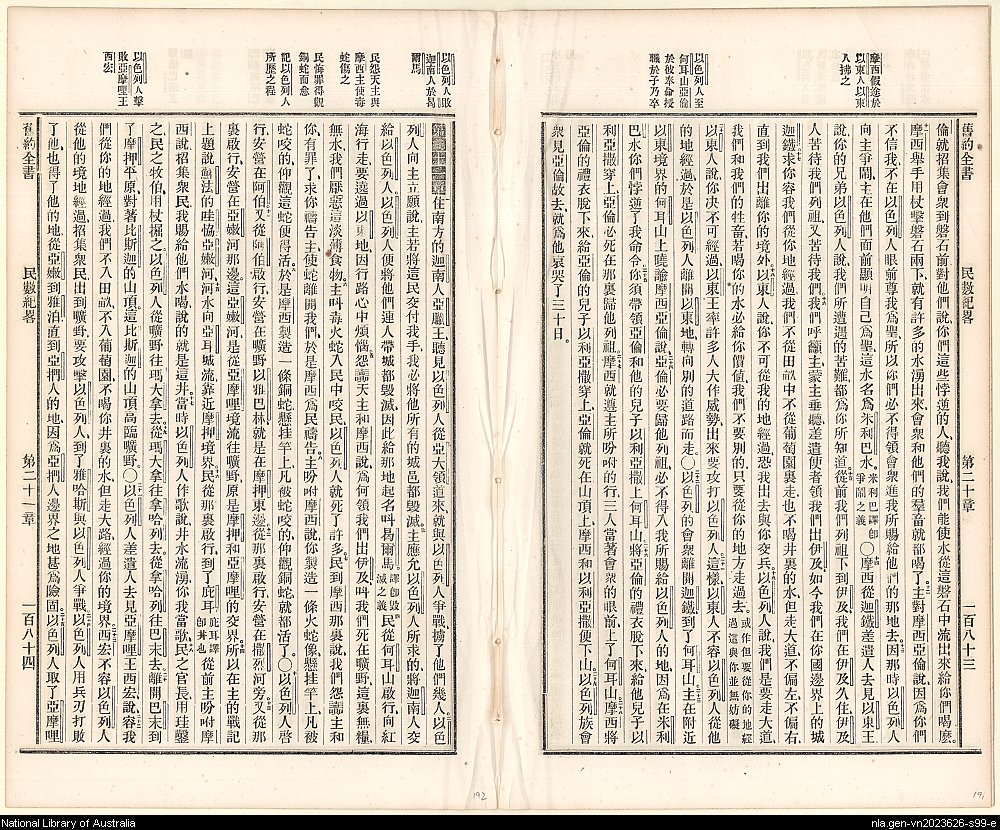 舊約全書
民數紀畧
第二十章
一百八十三
摩西假途於
以東人以東
人拂之
以色列人至
何耳山亞倫
於彼奉命授
職於子乃卒
倫就招集會衆到磐石前對他們說你們這些悖逆的人聽我說我們能使水從這磐石中流出來給你們喝麼
摩西舉手用杖擊磐石兩下就有許多的水湧出來會衆和他們的羣畜就都喝了主對摩西亞倫說因爲你們
不信我不在以色列人眼前尊我爲聖所以你們必不得領會衆進我所賜給他們的那地去因那時以色列人
向主爭鬧主在他們面前顯明自己爲聖這水名爲米利巴水米利巴譯卽爭鬧之義〇摩西從迦鐵差遣人去見以東王
說你的兄弟以色列人說我們所遭遇的苦難都爲你所知道從前我們列祖下到伊及我們在伊及久住伊及
人苦待我們列祖又苦待我們我們呼籲主蒙主垂聽差遣使者領我們出伊及如今我們在你國邊界上的城
迦鐵求你容我們從你地經過我們不從田畝中不從葡萄園裏走也不喝井裏的水但走大道不偏左不偏右
直到我們出離你的境外以東人說你不可從我的地經過恐我出去與你交兵以色列人說我們是要走大道
我們和我們的牲畜若喝你的水必給你價值我們不要別的只要從你的地方走過去或作但要從你的地經過這與你並無妨礙
以東人說你决不可經過以東王率許多人大作威勢出來要攻打以色列人這樣以東人不容以色列人從他
的地經過於是以色列人離開以東地轉向別的道路而走〇以色列的會衆離開迦鐵到了何耳山主在附近
以東境界的何耳山上曉諭摩西亞倫說亞倫必要歸他列祖必不得入我所賜給以色列人的地因爲在米利
巴水你們悖逆了我命令你須帶領亞倫和他的兒子以利亞撒上何耳山將亞倫的禮衣脫下來給他兒子以
利亞撒穿上亞倫必死在那裏歸他列祖摩西就遵主所吩咐的行三人當著會衆的眼前上了何耳山摩西將
亞倫的禮衣脫下來給他的兒子以利亞撒穿上亞倫就死在山頂上摩西和以利亞撒便下山以色列族會
衆見亞倫故去就爲他哀哭了三十日
以色列人敗
迦南人於曷
爾馬
民怨天主與
摩西主使毒
蛇傷之
民悔罪得觀
銅蛇而愈
記以色列人
所歷之程
以色列人擊
敗亞摩哩王
西宏
第二十一章住南方的迦南人亞臘王聽見以色列人從亞大領道來就與以色列人爭戰擄了他們幾人以色
列人向主立願說主若將這民交付我手我必將他所有的城邑都毀滅主應允以色列人所求的將迦南人交
給以色列人以色列人便將他們連人帶城都毀滅因此給那地起名叫曷爾馬譯卽毀滅之義民從何耳山啟行向紅
海行走要遶過以東地因行路心中煩惱怨讟天主和摩西說爲何領我們出伊及叫我們死在曠野這裏無糧
無水我們厭惡這淡薄食物主叫毒火蛇入民中咬民以色列人就死了許多民到摩西那裏說我們怨讟主和
你有罪了求你禱告主使蛇離開我們於是摩西爲民禱告主吩咐摩西說你製造一條火蛇像懸挂竿上凡被
蛇咬的仰觀這蛇便得活於是摩西製造一條銅蛇懸挂竿上凡被蛇咬的仰觀銅蛇就都活了〇以色列人啓
行安營在阿伯又從阿伯啟行安營在曠野以雅巴林就是在摩押東邊從那裏啟行安營在撒烈河旁又從那
裏啟行安營在亞嫩河那邊這亞嫩河是從亞摩哩境流往曠野原是摩押和亞摩哩的交界所以在主的戰記
上題說蘇法的哇協亞嫩河河水向亞耳城流靠近摩押境界民從那裏啟行到了庇耳庇耳譯卽井也從前主吩咐摩
西說招集衆民我賜給他們水喝說的就是這井當時以色列人作歌說井水流湧你我當歌民之官長用珪鑿
之民之牧伯用杖掘之以色列人從曠野往瑪大拿去從瑪大拿往拿哈列去從拿哈列往巴末去離開巴末到
了摩押平原對著比斯迦的山頂這比斯迦的山頂高臨曠野〇以色列人差遣人去見亞摩哩王西宏說容我
們從你的地經過我們不入田畝不入葡萄園不喝你井裏的水但走大路經過你的境界西宏不容以色列人
從他的境地經過招集衆民出到曠野要攻擊以色列人到了雅哈斯與以色列人爭戰以色列人用兵刃打敗
了他也得了他的地從亞嫩到雅泊直到亞捫人的地因爲亞捫人邊界之地甚爲險固以色列人取了亞摩哩
舊約全書
民數紀畧
第二十一章
一百八十四
192
191
National Library of Australia
nla.gen-vn2023626-s99-e